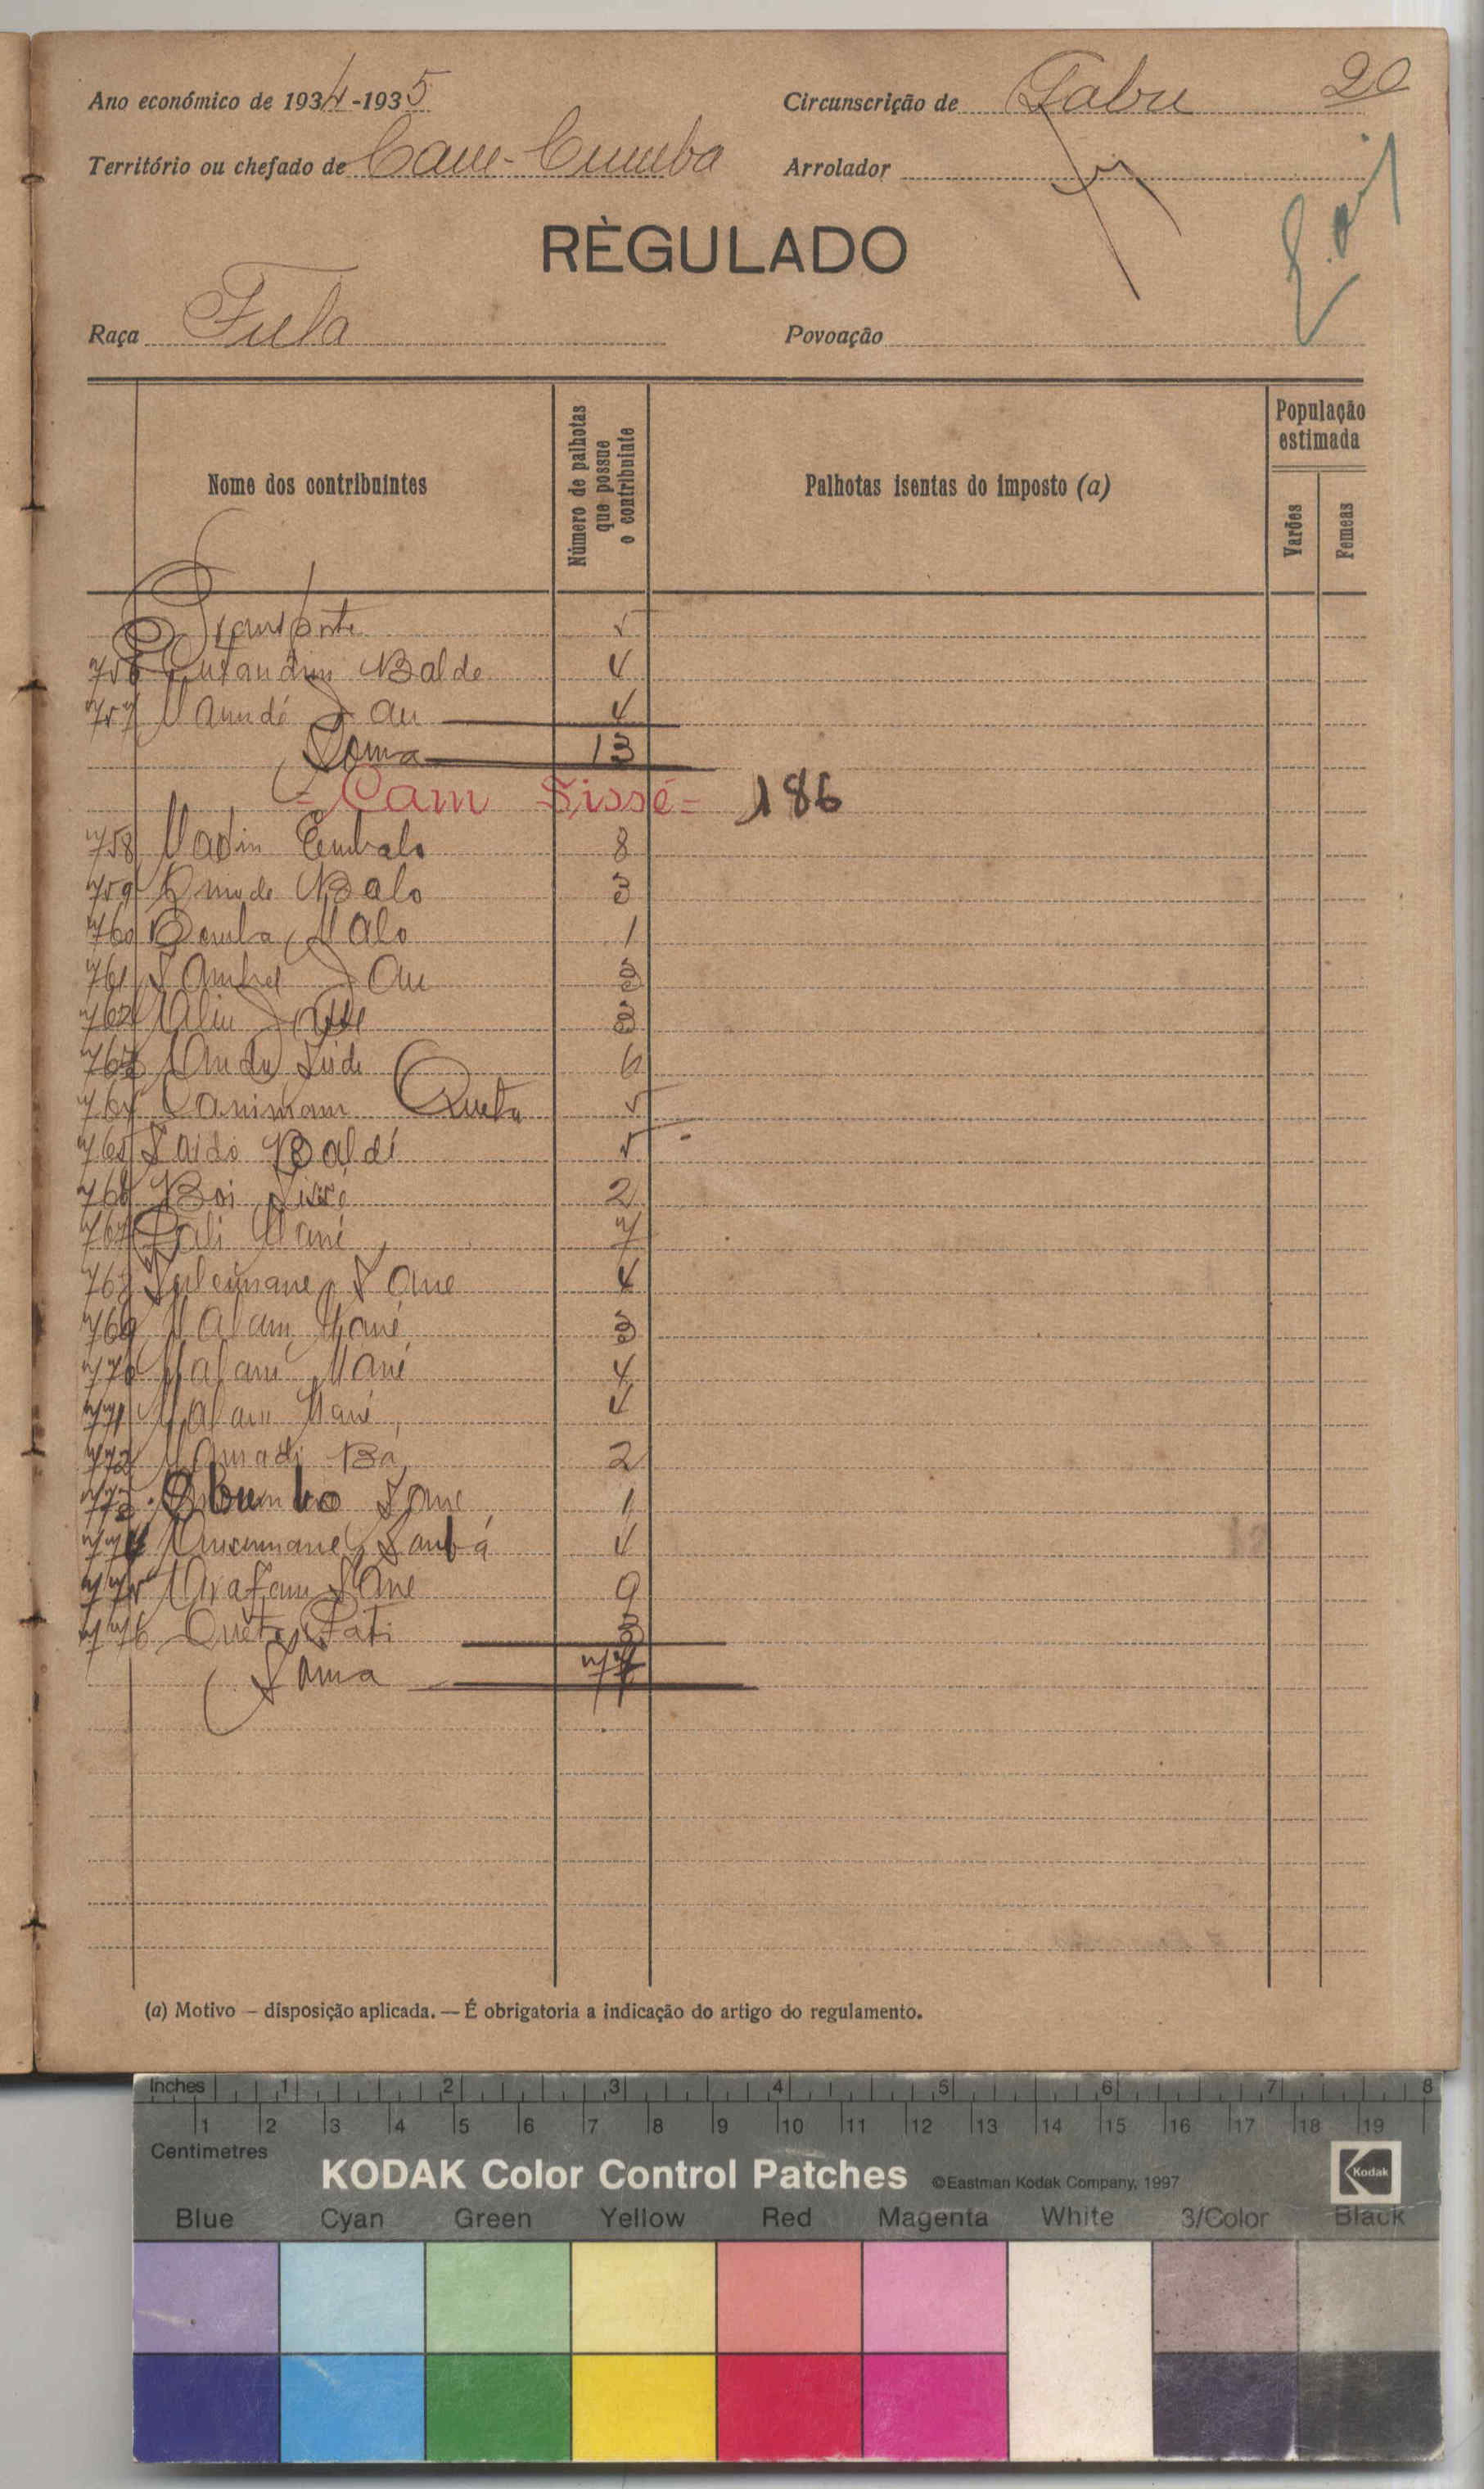 Ano económico de 1934-1935
Circunscrição de Gabu 20
Território ou chefado de Cam-Cumba
Arrolador
RÈGULADO
Raça Fula
Povoação
Nome dos contribuintes
Número de palhotas que possue o contribuinte
Palhotas isentas do imposto (a)
População estimada
Varões
Femeas
Transporte 5
756 Balde 4
757 4
Soma 13
= Cam Sissé = 186
758 Embalo 8
759 Balo 3
760 Demba 1
761 3
762 Aliu 3
763 6
764 Queta 5
765 Saido Baldé 5
766 Boi Sissé 2
767 Mané 7
768 Suleimane Sane 4
769 Malam Mané 3
770 Malam Mané 4
771 Malam Mané 4
772 Mamadi Ba 2
773 Sane 1
774 4
775 Arafam Sane 9
776 Queta Fati 3
Soma 77
(a) Motivo — disposição aplicada. — É obrigatoria a indicação do artigo do regulamento.
Inches 1 2 3 4 5 6 7 8
1 2 3 4 5 6 7 8 9 10 11 12 13 14 15 16 17 18 19
Centimetres
KODAK Color Control Patches ©Eastman Kodak Company, 1997 Kodak
Blue Cyan Green Yellow Red Magenta White 3/Color Black